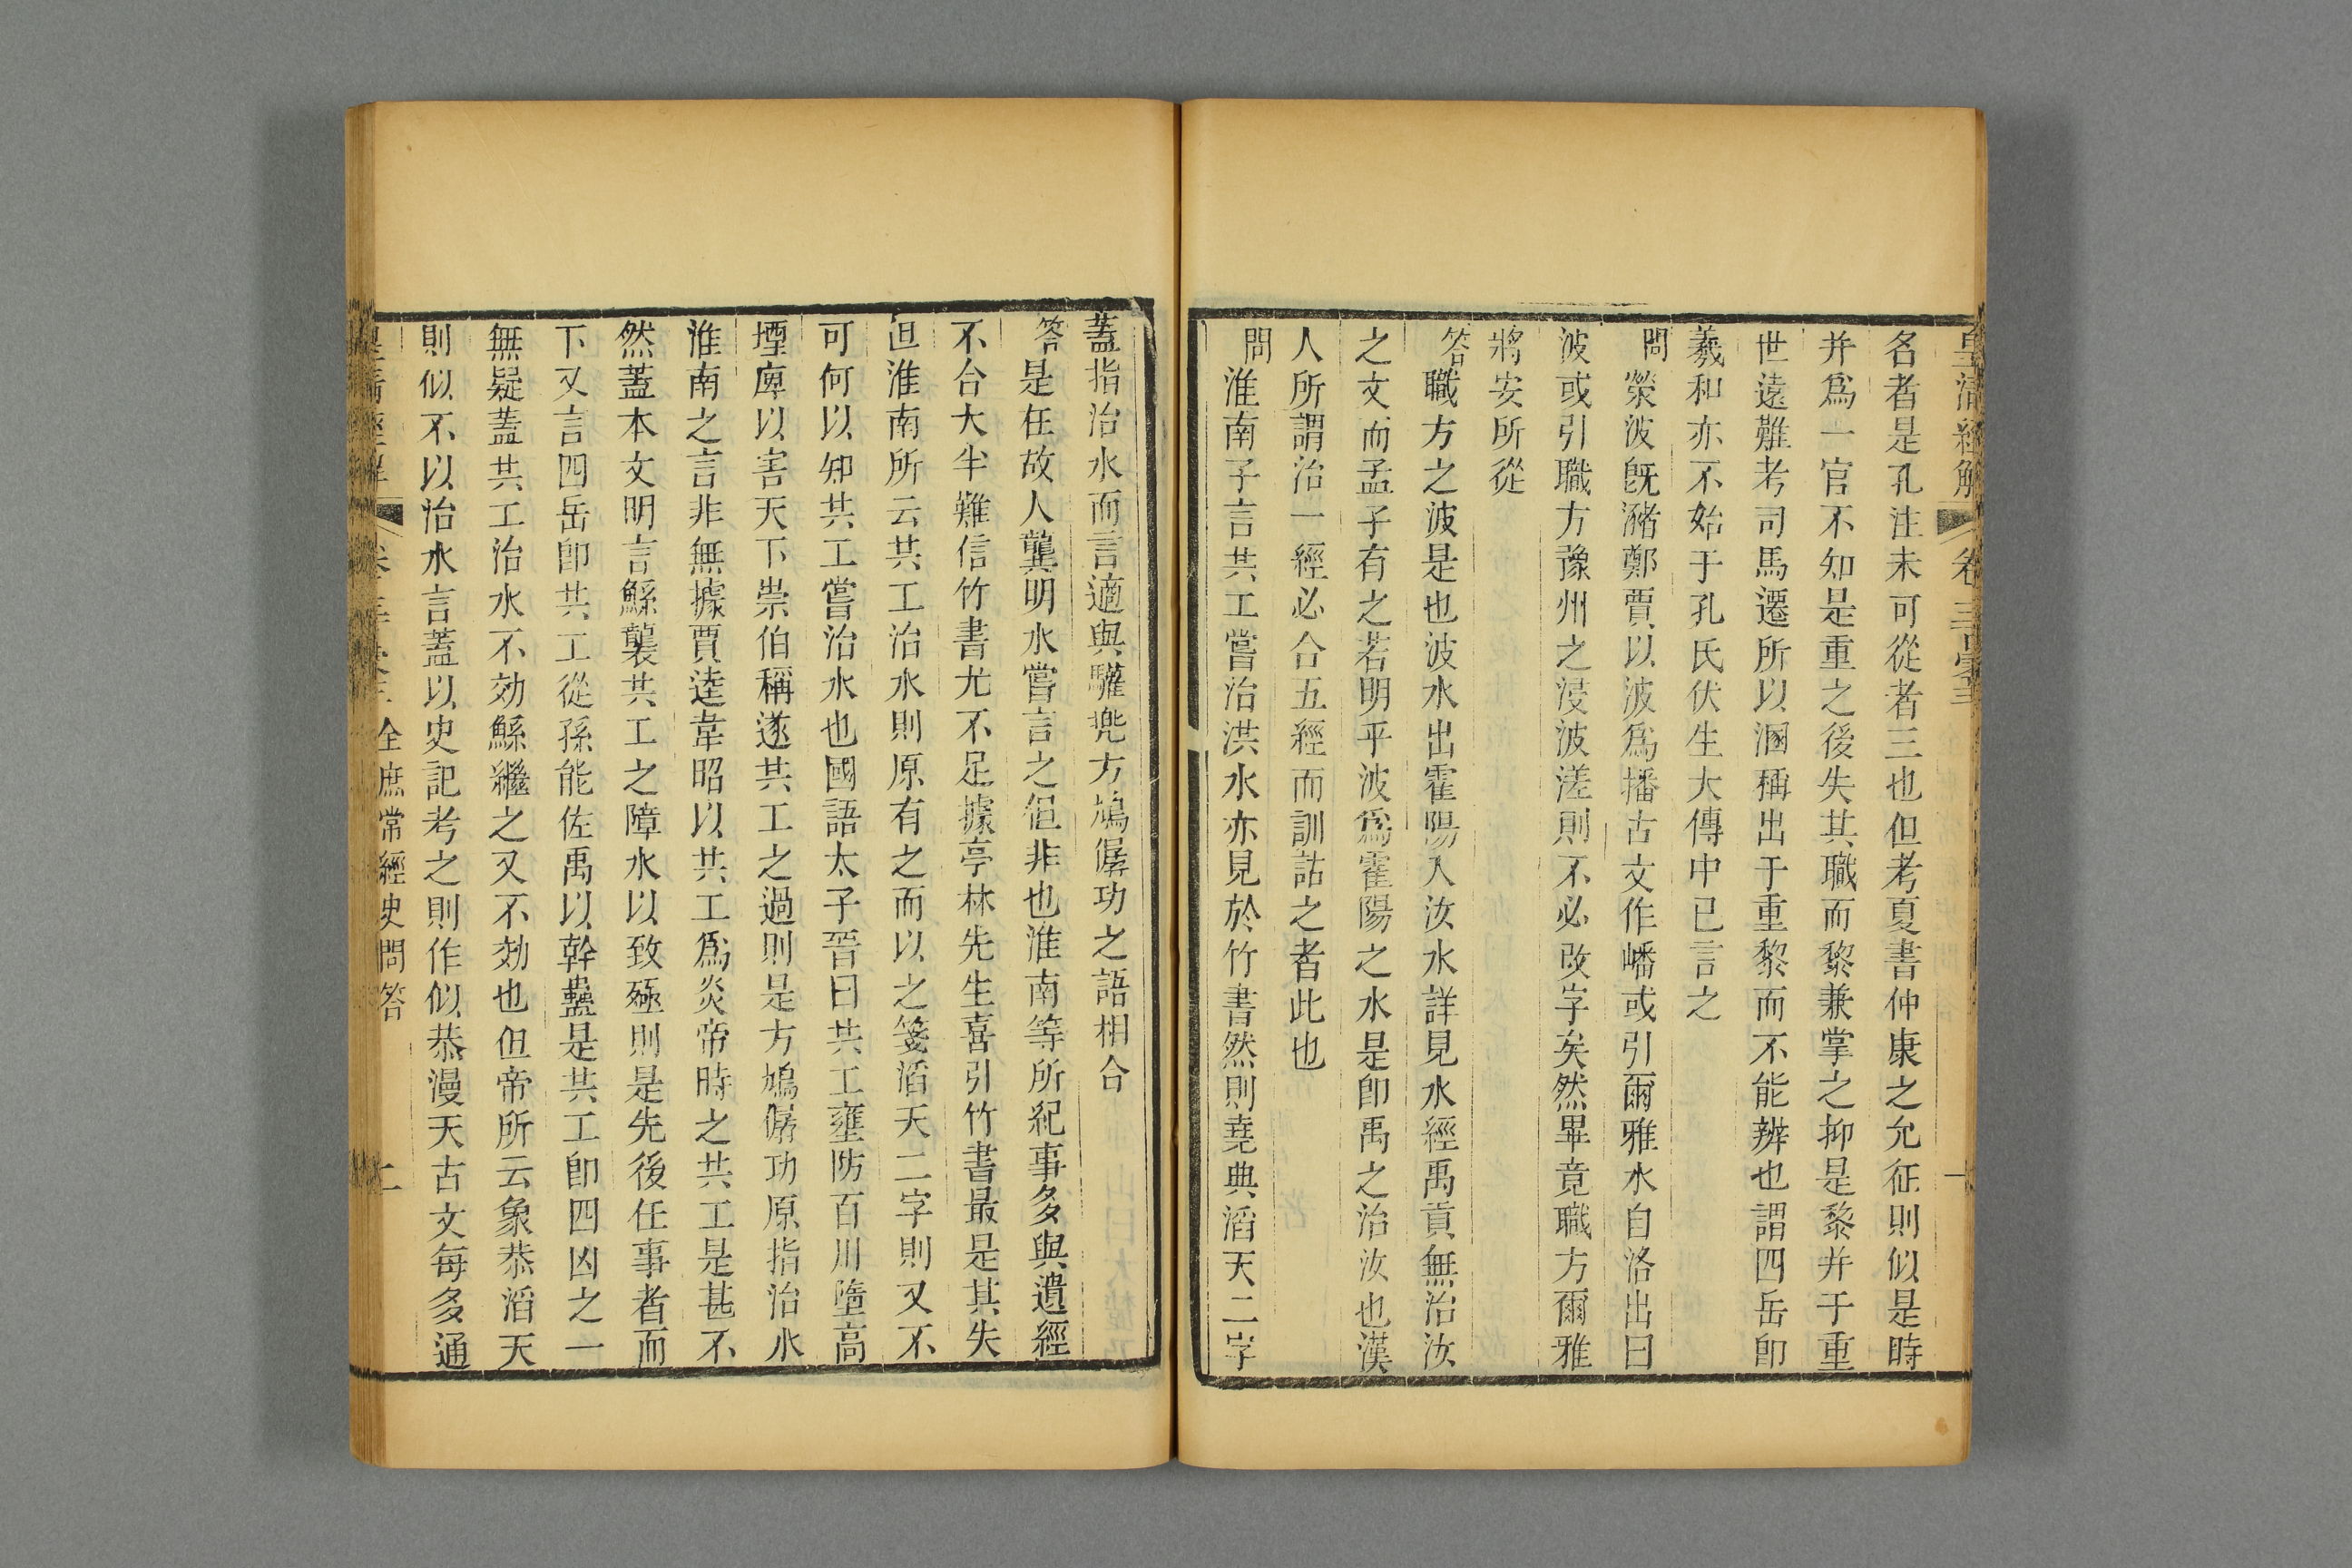 皇清經解
卷三百
一
名者是孔注未可從者三也但考夏書仲康之允征則似是時
并爲一官不知是重之後失其職而黎兼掌之抑是黎并于重
世遠難考司馬遷所以溷稱出于重黎而不能辨也謂四岳卽
羲和亦不始于孔氏伏生大傳中已言之
問滎波旣瀦鄭賈以波爲播古文作嶓或引爾雅水自洛出曰
波或引職方豫州之浸波溠則不必改字矣然畢竟職方爾雅
將安所從
答職方之波是也波水出霍陽入汝水詳見水經禹貢無治汝
之文而孟子有之若明乎波爲霍陽之水是卽禹之治汝也漢
人所謂治一經必合五經而訓詁之者此也
問淮南子言共工嘗治洪水亦見於竹書然則堯典滔天二字
蓋指治水而言適與驩兜方鳩僝功之語相合
答是在故人龔明水嘗言之但非也淮南等所紀事多與遺經
不合大半難信竹書尤不足據亭林先生喜引竹書最是其失
但淮南所云共工治水則原有之而以之箋滔天二字則又不
可何以知共工嘗治水也國語太子晉曰共工壅防百川墮高
堙庳以害天下崇伯稱遂共工之過則是方鳩僝功原指治水
淮南之言非無據賈逵韋昭以共工爲炎帝時之共工是甚不
然蓋本文明言鯀襲共工之障水以致殛則是先後任事者而
下又言四岳卽共工從孫能佐禹以幹蠱是共工卽四凶之一
無疑蓋共工治水不効鯀繼之又不効也但帝所云象恭滔天
則似不以治水言蓋以史記考之則作似恭漫天古文每多通
皇清經解
全庶常經史問答
二